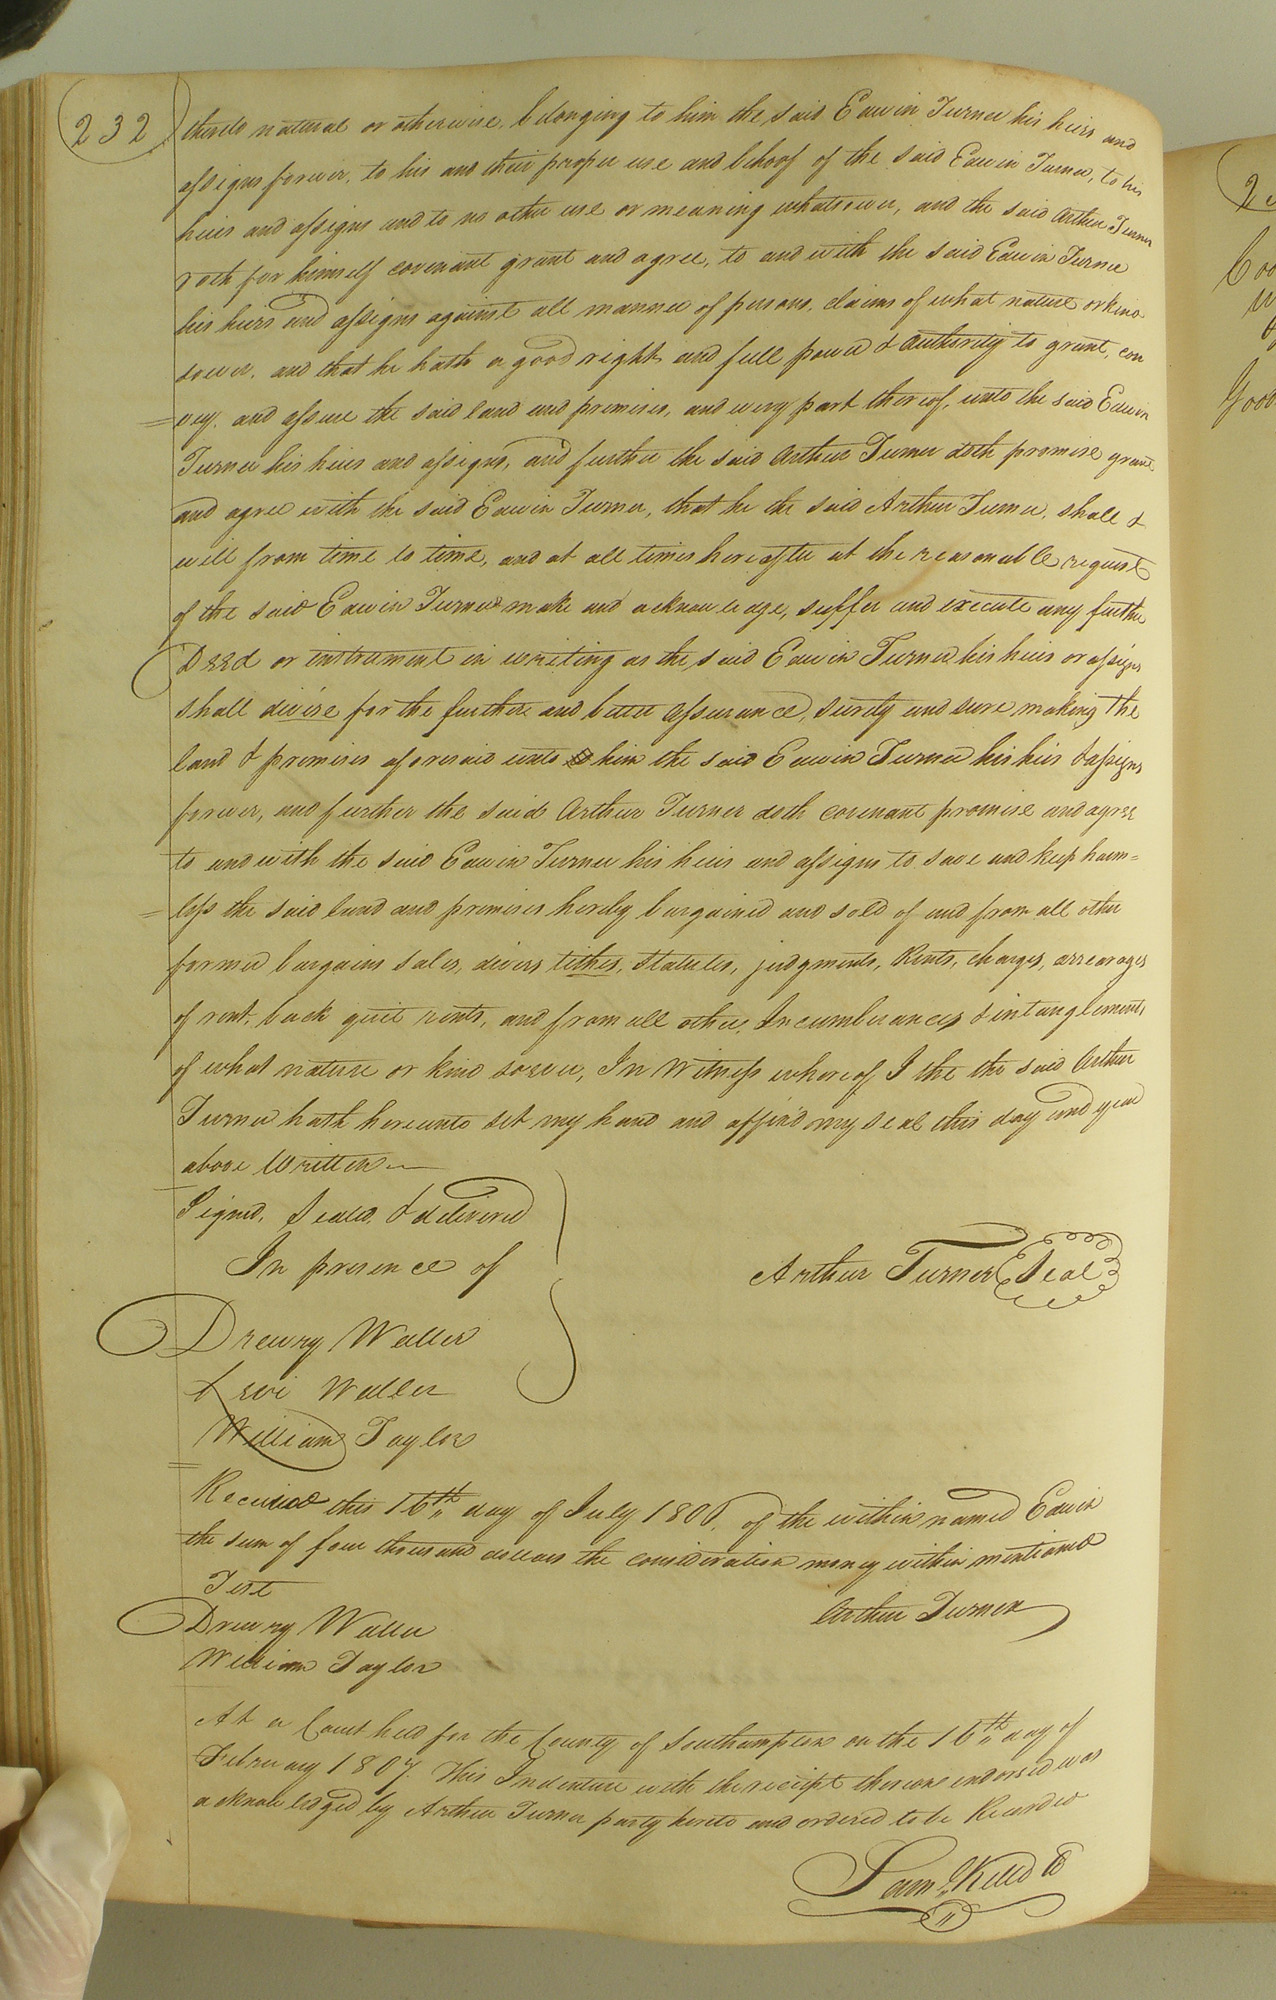 232
thereto natural or otherwise, belonging to him the said Edwin Turner his heirs and
assigns forever, to his and their proper use and behoof of the said Edwin Turner, to his
heirs and assigns and to no other use or meaning whatsoever, and the said Arthur Turner
doth for himself covenant grant and agree, to and with the said Edwin Turner
his heirs and assigns against all manner of persons, claims of what nature or kind
soever, and that he hath a good right and full power & authority to grant, con
=vey. and assure the said land and premises, and every part thereof, unto the said Edwin
Turner his heirs and assigns, and further the said Arthur Turner doth promise grant
and agree with the said Edwin Turner, that he the said Arthur Turner, shall &
will from time to time, and at all times hereafter at the reasonable request
of the said Edwin Turner make and acknowledge, suffer and execute any further
Deed or instrument in writing as the said Edwin Turner his heirs or assigns
shall divise for the further and better assurance, surety and sure making the
land & premises aforesaid unto him the said Edwin Turner his heirs & assigns
forever, and further the said Arthur Turner doth covenant promise and agree
to and with the said Edwin Turner his heirs and assigns to save and keep harm=
=less the said land and premises hereby bargained and sold of and from all other
former bargains sales, divers tithes, statutes, judgments, Rents, charges, arrearages
of rent, back quit rents, and from all other Incumberances & intanglements,
of what nature or kind soever, In Witness whereof I the the said Arthur
Turner hath hereunto set my hand and affix'd my seal this day and year
above Written
Signed, Sealed & delivered
In presence of
Arthur Turner Seal
Drewry Waller
Levi Waller
William Taylor
Received this 16th day of July 1806, of the within named Edwin
the sum of four thousand dollars the consideration money within mentioned
Test
Arthur Turner
Drewry Waller
William Taylor
At a Court held for the County of Southampton on the 16th day of
February 1807. This Indenture with the receipt thereon endorsed was
acknowledged by Arthur Turner party hereto and ordered to be Recorded
Saml. Kello